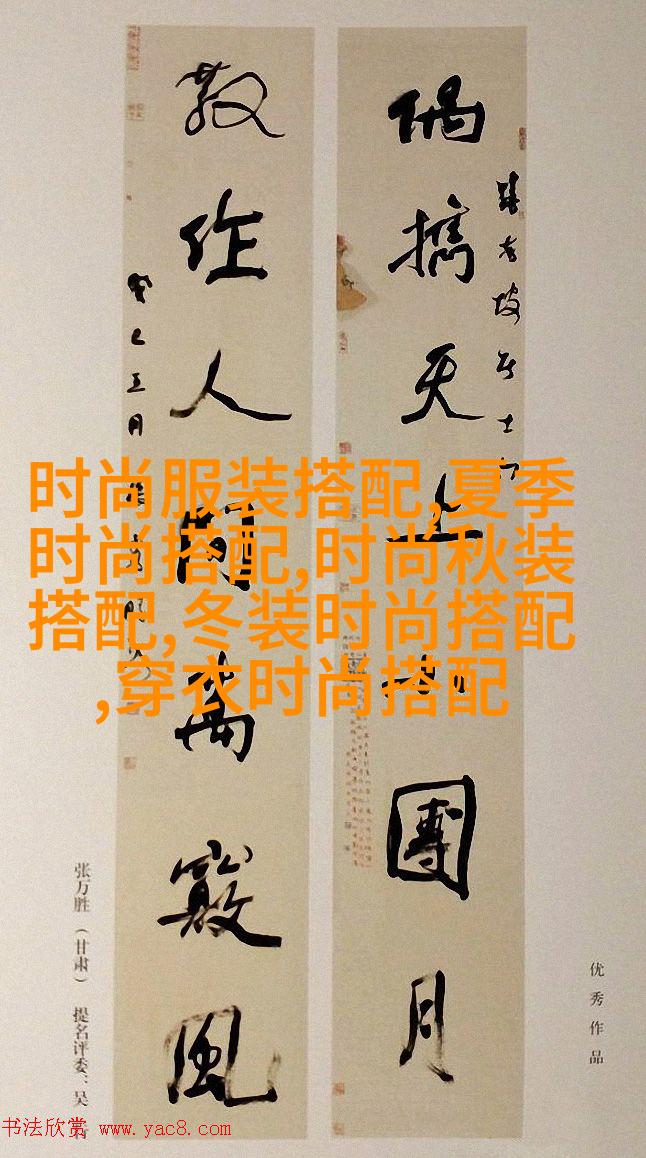 偶携天上一團月
坡居士
散作人間萬竅風
癸巳五月
时尚服装搭配,夏季
时尚搭配,时尚秋装
搭配,冬装时尚搭配
,穿衣时尚搭配
优秀作品
张万胜（甘肃） 提名评委：吴
书法欣赏 www.yac8.com